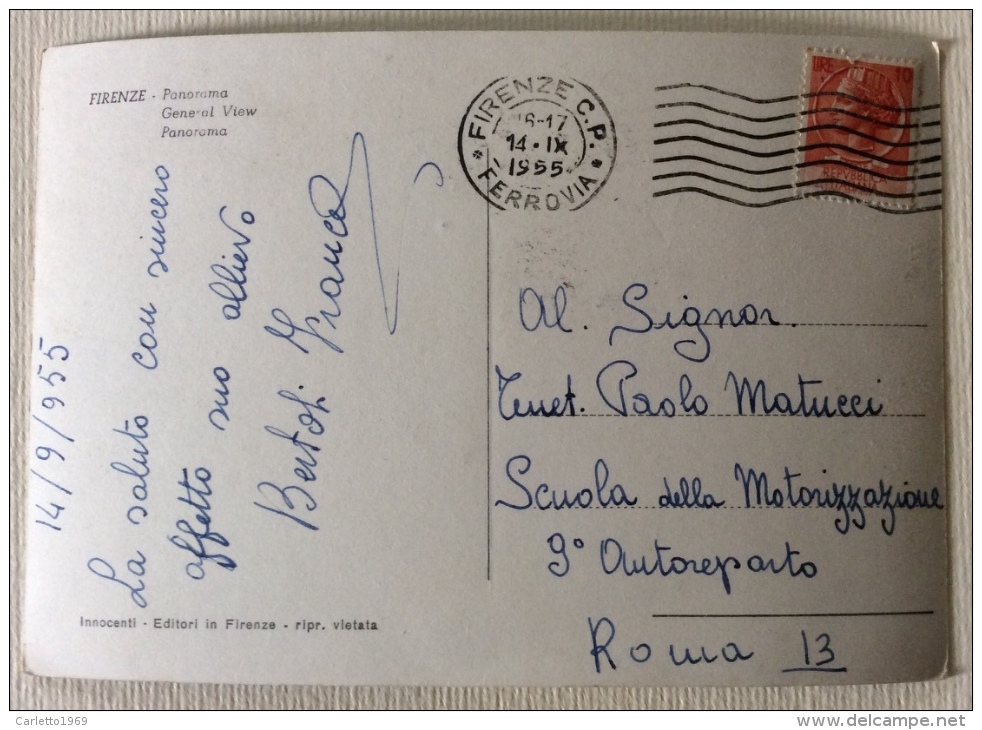 FIRENZE - Panorama
General View
Panorama
14/9/955
La saluto con sincero
affetto suo allievo
Bertoli Franco
Innocenti - Editori in Firenze - ripr. vietata
FIRENZE C.P.
16-17
14·IX
1955
* FERROVIA *
LIRE 10
REPVBBLICA
ITALIANA
Al. Signor.
Tenet. Paolo Matucci
Scuola della Motorizzazione
9° Autoreparto
Roma 13
Carletto1969
delcampe.net